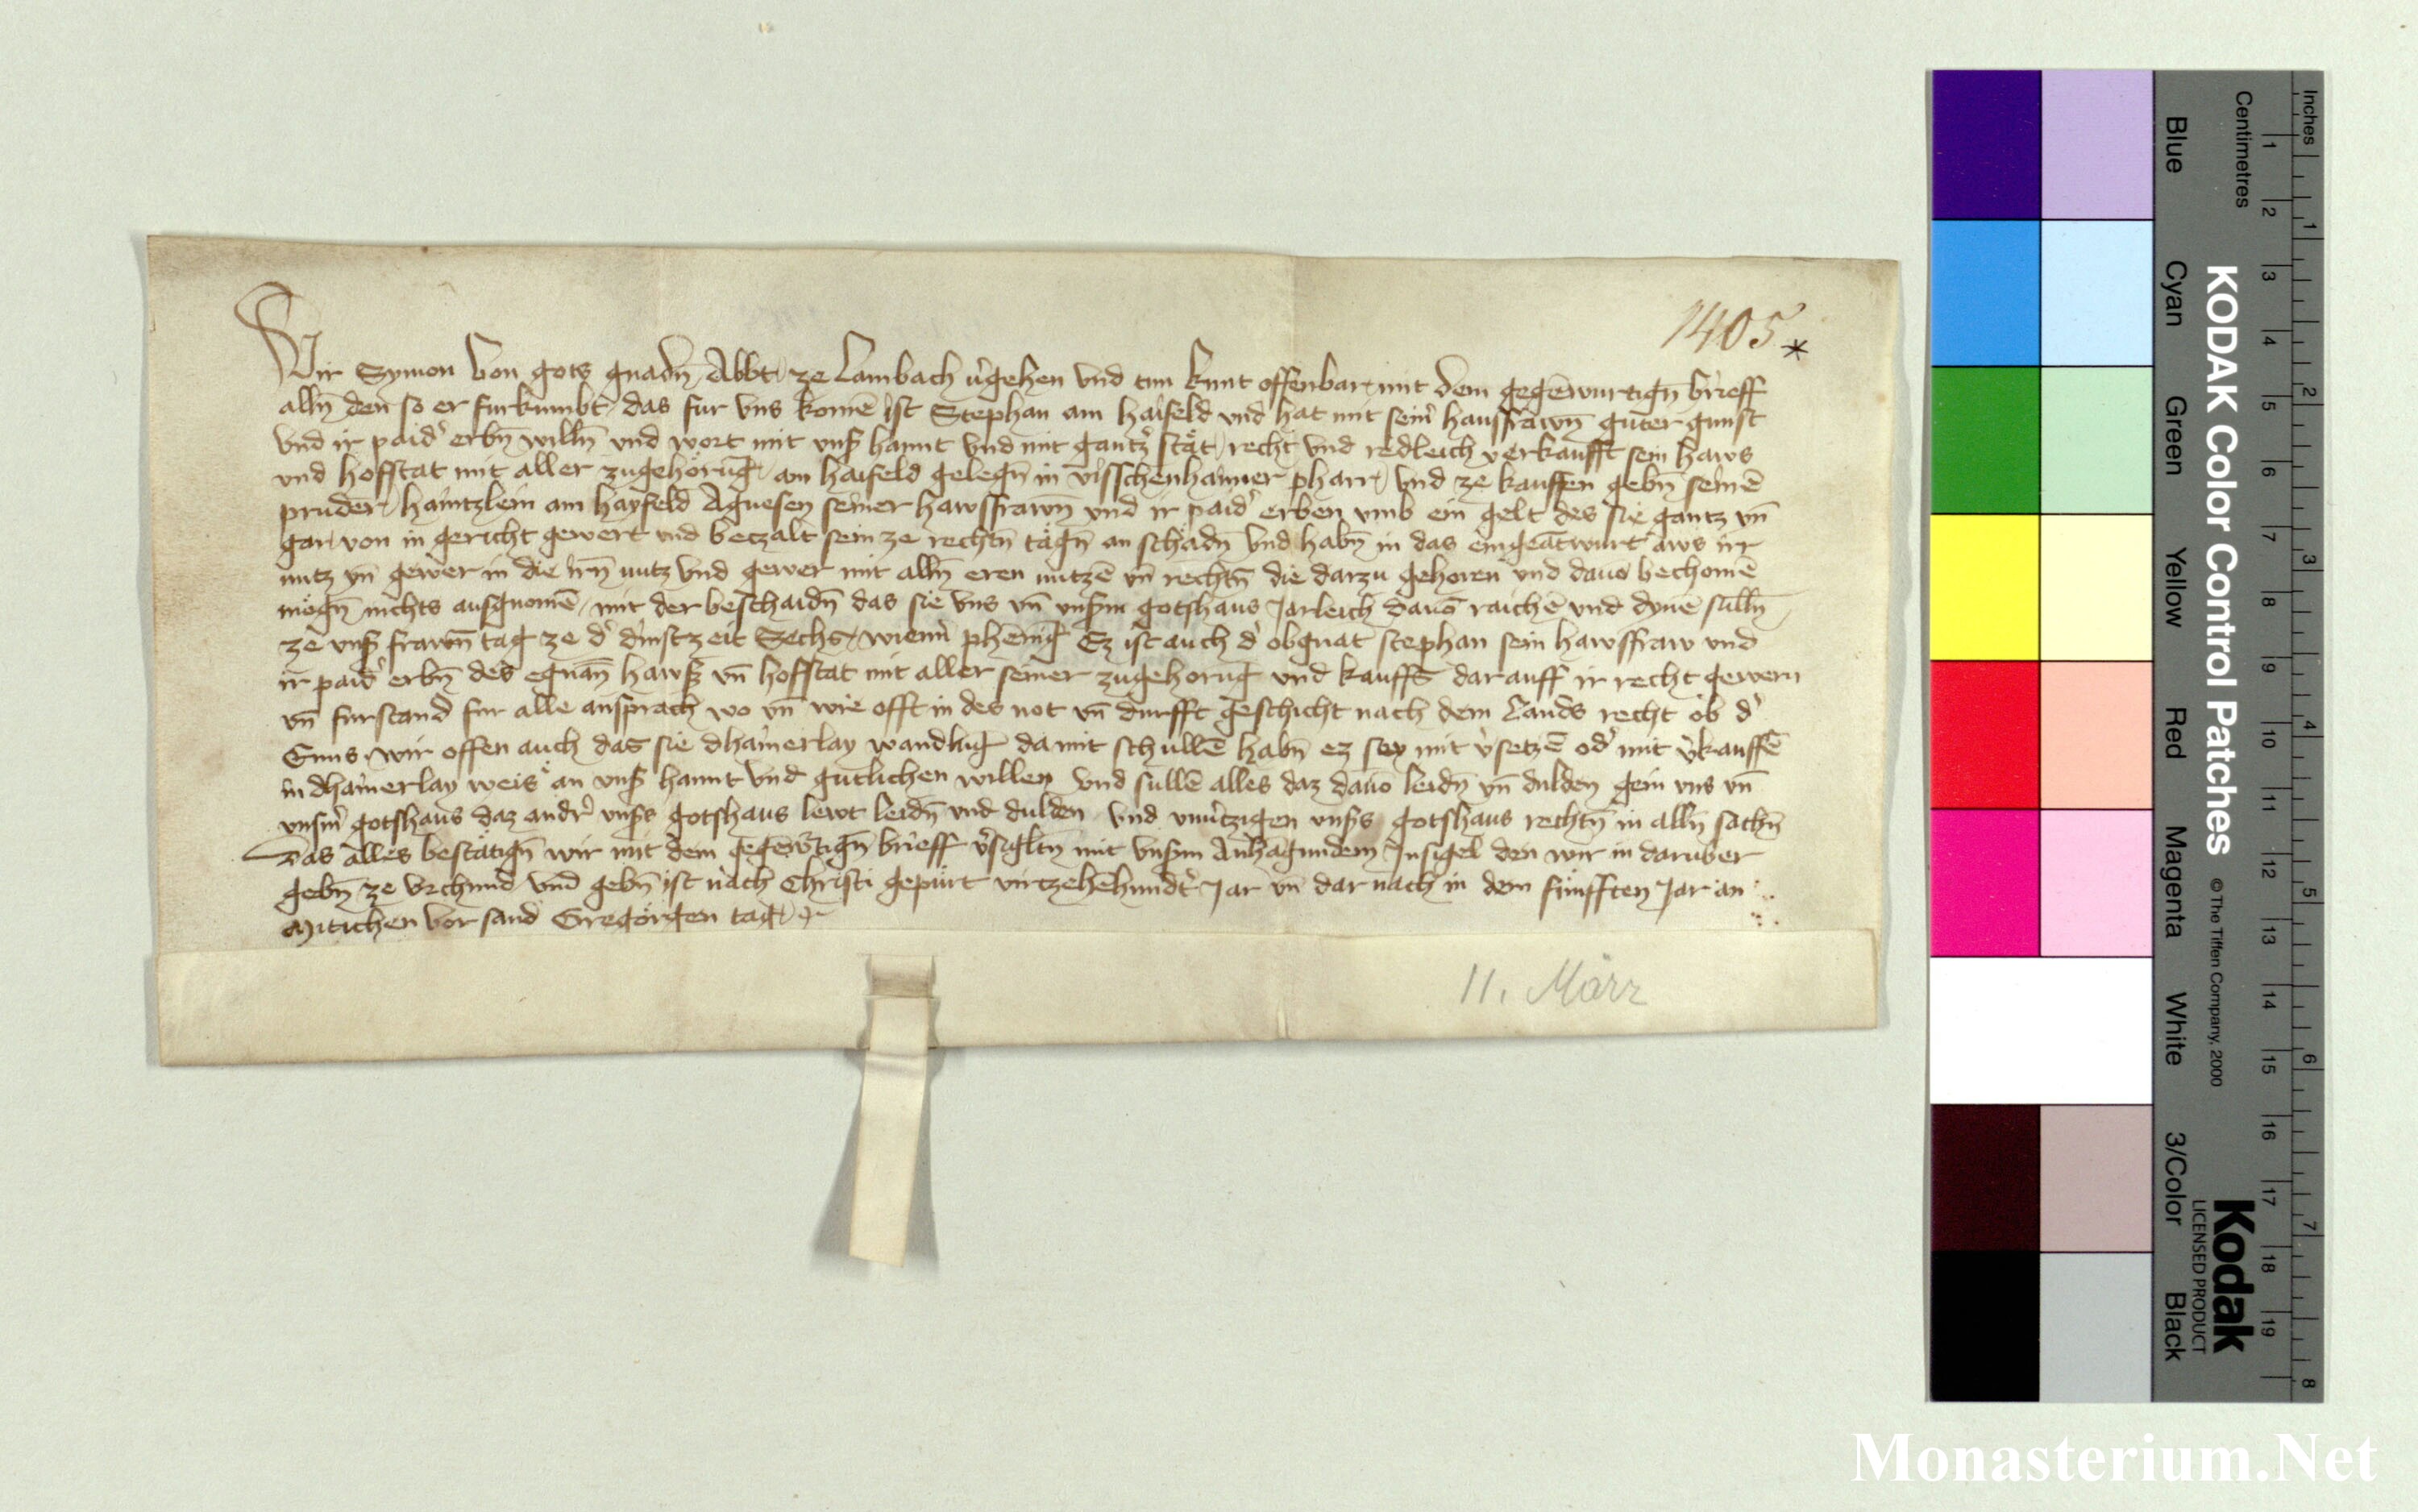 1405 *
Wir Symon von gots gnadn̄ Abbt ze Lambach v̓gehen vnd tun kunt offenbar mit dem gegēwurtign̄ brieff
alln̄ den so er furkumbt das fur vns komē ist Stephan am haifeld vnd hat mit sein̓ hausfrawn̄ guter gunst
vnd ir paid̓ erbn̄ willn̄ vnd wort mit vnß hannt vnd mit gantz̓ stät recht vnd redleich verkaufft sein haws
vnd hofstat mit aller zugehörūg am haifeld gelegn̄ in vischenhaimer pharr vnd ze kauffen gebn̄ seinē
pruder haintzlein am hayfeld Agnesen seiner hawsfrawn̄ vnd ir paid̓ erben vmb ein gelt des sie gantz vn̄
gar von in gericht gewert vnd beczalt sein ze rechtn̄ tägn̄ an schädn̄ vnd habn̄ in das eingeātwurt aws irr
nutz vn̄ gewer in die irn̄ nutz vnd gewer mit alln̄ eren nutzē vn̄ rechtn̄ die darzu gehoren vnd dauō bechomē
mögn̄ nichts ausgnomē mit der beschaidn̄ das sie vns vn̄ vnßm gotshaus Jarleich dauō raichē vnd dynē sulln̄
ze vnß frawn̄ tag ze d̓ dinstzeit Sechs wienn̓ phēnig Ez ist auch d̓ obgnat stephan sein hawsfraw vnd
ir paid̓ erbn̄ des egnān̄ hawß vn̄ hofstat mit aller seiner zugehorūg vnd kauffs darauff ir recht gewern
vn̄ furstand fur alle ansprach wo vn̄ wie offt in des not vn̄ durfft geschicht nach dem Lands recht ob d̓
Enns wir offen auch das sie dhainerlay wandlūg damit schullē habn̄ ez sey mit v̓setzē od̓ mit v̓kauffē
in dhainerlay weis an vnß hannt vnd gutlichen willen vnd sullē alles daz dauō leidn̄ vn̄ dulden gein vns vn̄
vnsm̓ gotshaus daz andr̓ vnßs gotshaus lewt leidn̄ vnd dulden vnd vnu̓tzigen vnßs gotshaus rechtn̄ in alln̄ sachn̄
Das alles bestätign̄ wir mit dem gegēwrtign̄ brieff v̓sigltn̄ mit vnßm Anhāgundem Insigel den wir in daruber
gebn̄ ze vrchund vnd gebn̄ ist nach Christi gepürt virtzehēhundt̓ Jar vn̄ dar nach in dem fünfften Jar an
Mitichen vor sand Gregörgen tag
11. März
Inches
Centimetres
KODAK Color Control Patches
© The Tiffen Company, 2000
Kodak
LICENSED PRODUCT
Blue
Cyan
Green
Yellow
Red
Magenta
White
3/Color
Black
1 2 3 4 5 6 7 8 9 10 11 12 13 14 15 16 17 18 19
1 2 3 4 5 6 7 8
Monasterium.Net